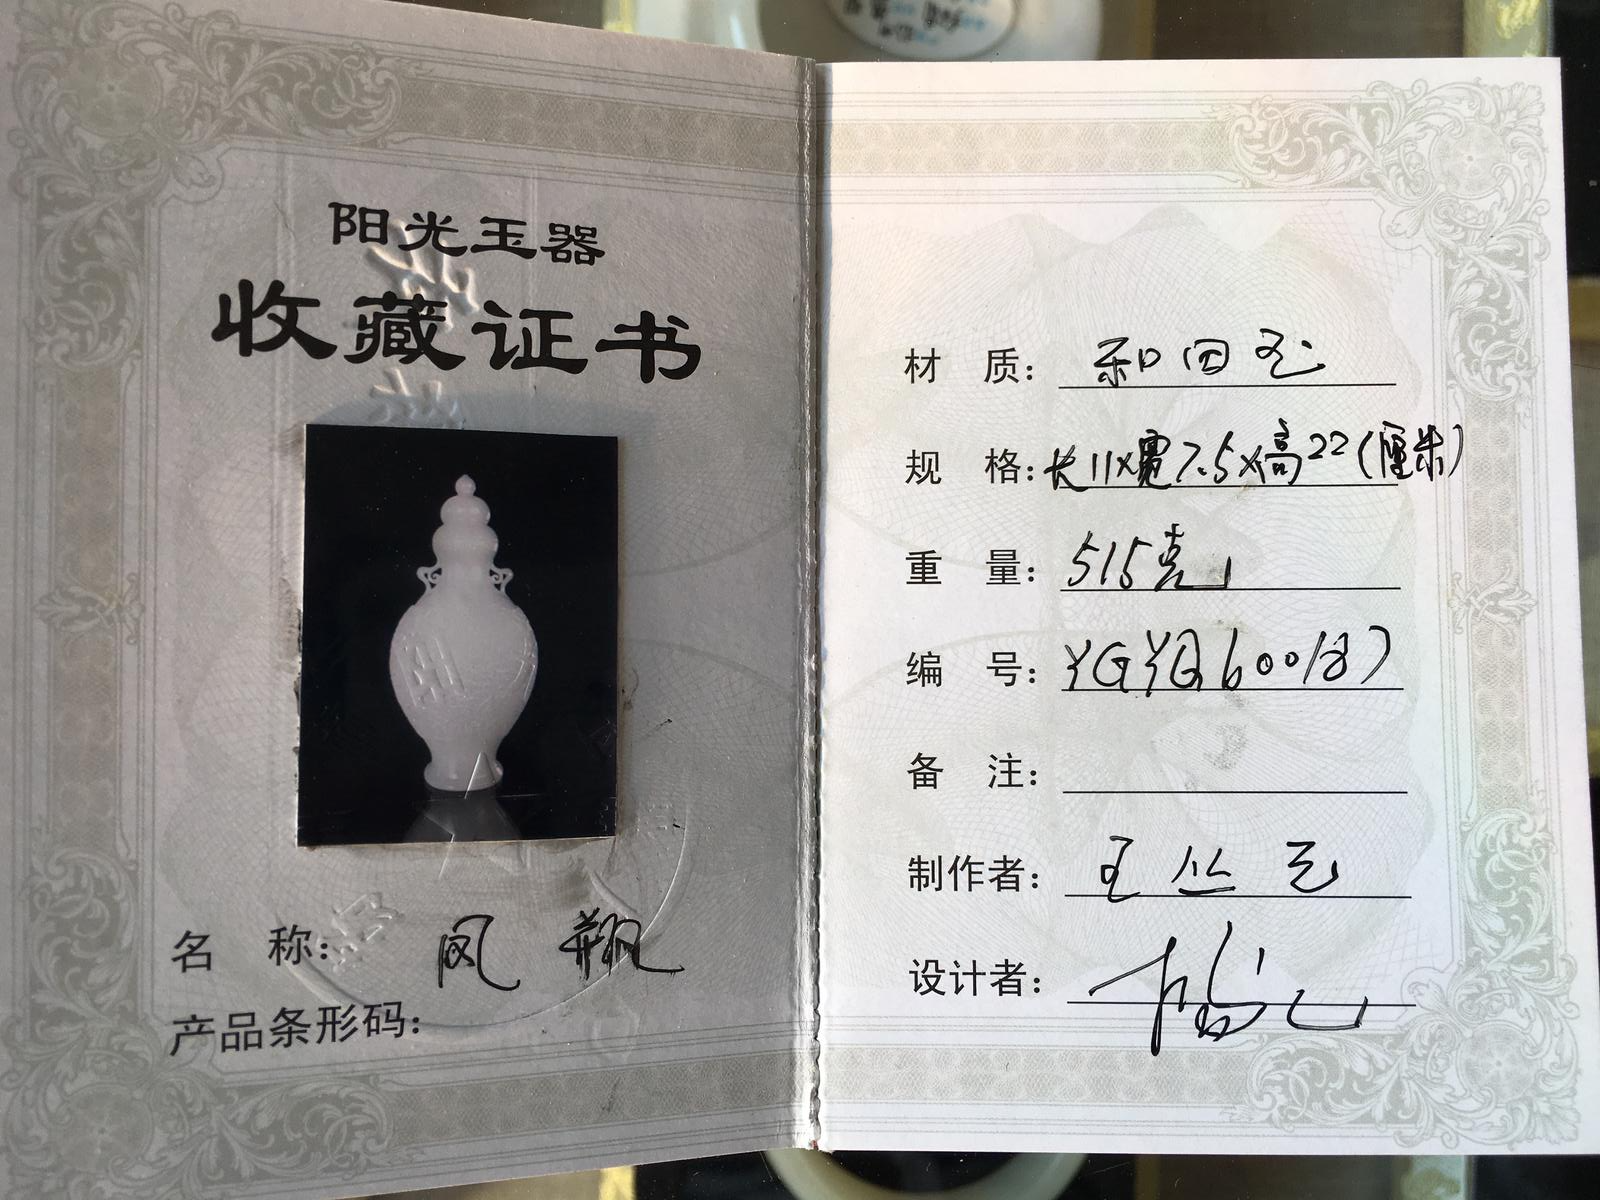 阳光玉器
收藏证书
名 称： 凤 瓶
产品条形码：
材 质： 和田玉
规 格：长11×宽7.5×高22(厘米)
重 量：515克
编 号：YGYQ600187
备 注：
制作者： 王丛元
设计者：